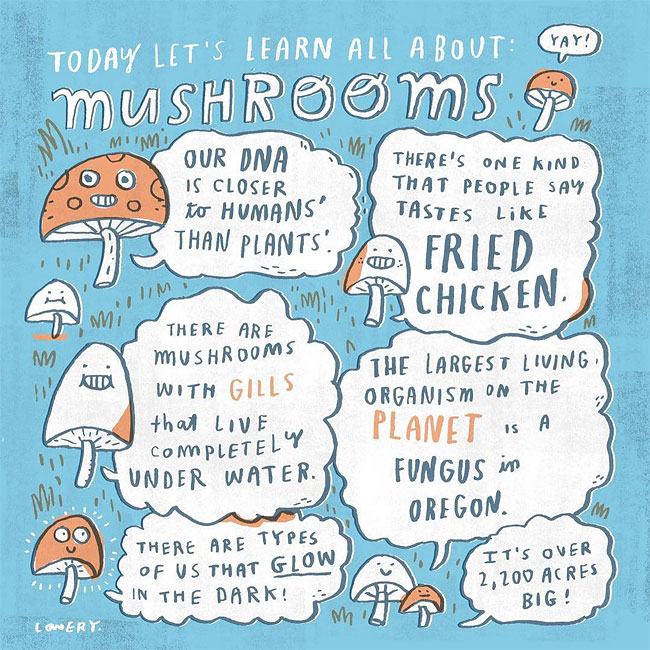 TODAY LET'S LEARN ALL ABOUT:
YAY!
MUSHROOMS
OUR DNA
IS CLOSER
to HUMANS'
THAN PLANTS'.
THERE'S ONE KIND
THAT PEOPLE SAY
TASTES LIKE
FRIED
CHICKEN.
THERE ARE
MUSHROOMS
WITH GILLS
that LIVE
COMPLETELY
UNDER WATER.
THE LARGEST LIVING
ORGANISM ON THE
PLANET IS A
FUNGUS in
OREGON.
THERE ARE TYPES
OF US THAT GLOW
IN THE DARK!
IT'S OVER
2,200 ACRES
BIG!
LOWERY.